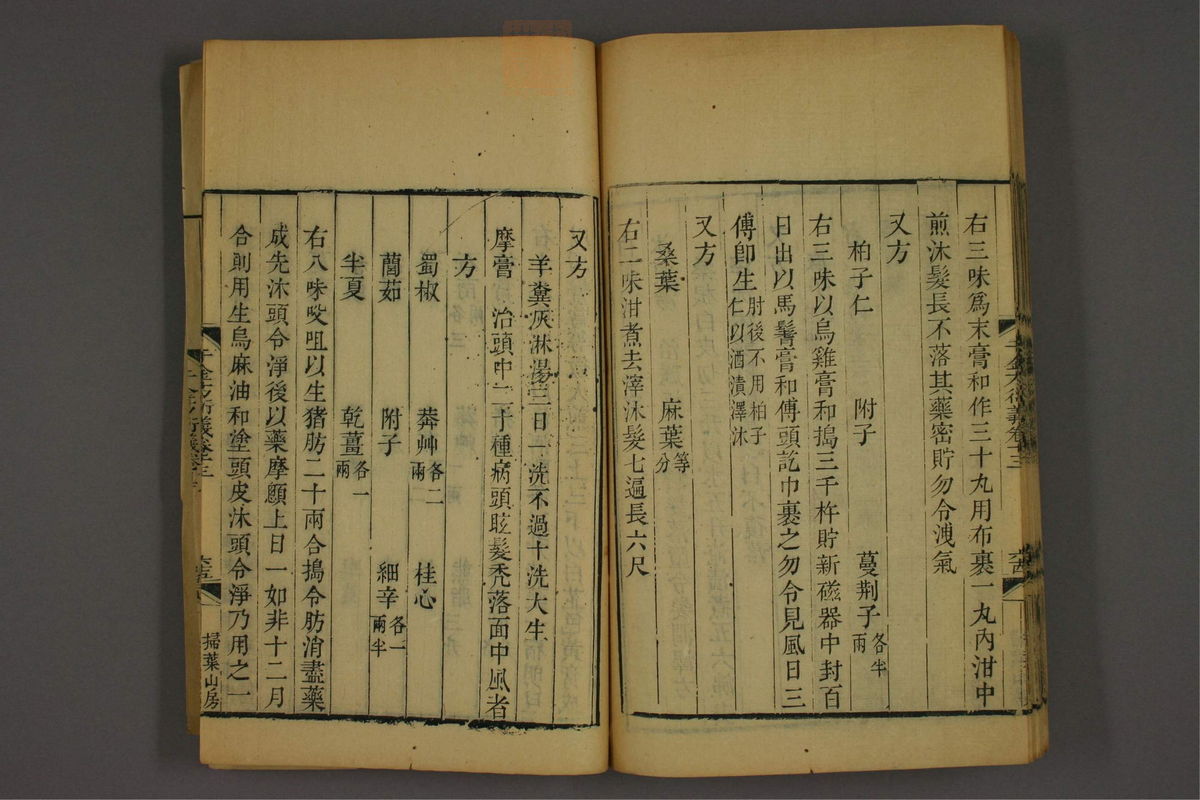 右三味爲末膏和作三十丸用布裹一丸內泔中
煎沐髮長不落其藥密貯勿令洩氣
又方
柏子仁 附子 蔓荊子各半兩
右三味以烏雞膏和搗三千杵貯新磁器中封百
日出以馬鬐膏和傅頭訖巾裹之勿令見風日三
傅卽生肘後不用柏子仁以酒漬澤沐
又方
桑葉 麻葉等分
右二味泔煮去滓沐髮七遍長六尺
又方
羊糞灰淋湯三日一洗不過十洗大生
摩膏 治頭中二十種病頭眩髮禿落面中風者
方
蜀椒 莽艸各二兩 桂心
䕡茹 附子 細辛各一兩半
半夏 乾薑各一兩
右八味㕮咀以生猪肪二十兩合搗令肪消盡藥
成先沐頭令淨後以藥摩顖上日一如非十二月
合則用生烏麻油和塗頭皮沐頭令淨乃用之一
千金方衍義卷十三
掃葉山房